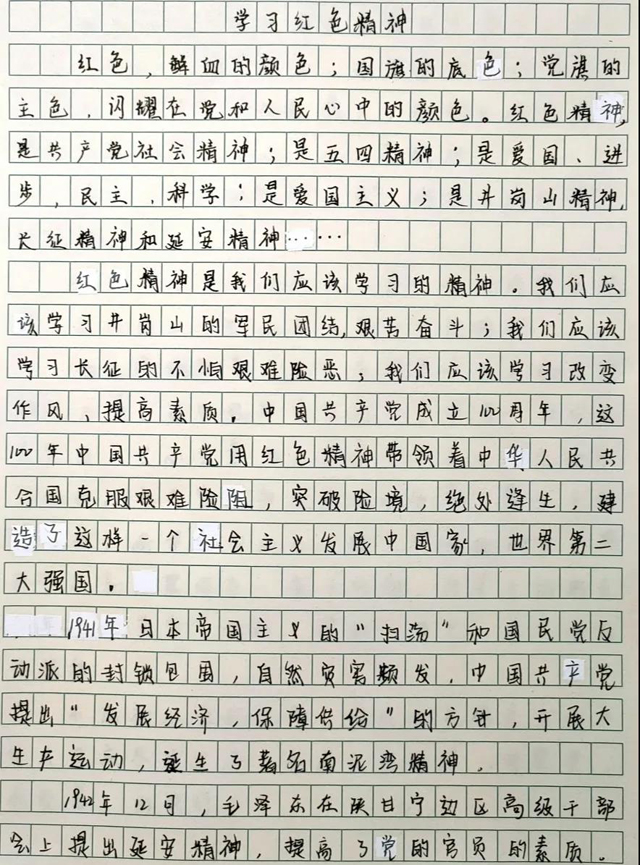 学习红色精神
红色，鲜血的颜色；国旗的底色；党旗的
主色，闪耀在党和人民心中的颜色。红色精神，
是共产党社会精神；是五四精神；是爱国、进
步，民主，科学；是爱国主义；是井岗山精神，
长征精神和延安精神……
红色精神是我们应该学习的精神。我们应
该学习井岗山的军民团结，艰苦奋斗；我们应该
学习长征的不怕艰难险恶；我们应该学习改变
作风，提高素质。中国共产党成立100周年，这
100年中国共产党用红色精神带领着中华人民共
合国克服艰难险阻，突破险境，绝处逢生，建
造了这样一个社会主义发展中国家，世界第二
大强国。
1941年日本帝国主义的“扫荡”和国民党反
动派的封锁包围，自然灾害频发，中国共产党
提出“发展经济，保障供给”的方针，开展大
生产运动，诞生了著名南泥湾精神。
1942年12月，毛泽东在陕甘宁边区高级干部
会上提出延安精神，提高了党的官员的素质。